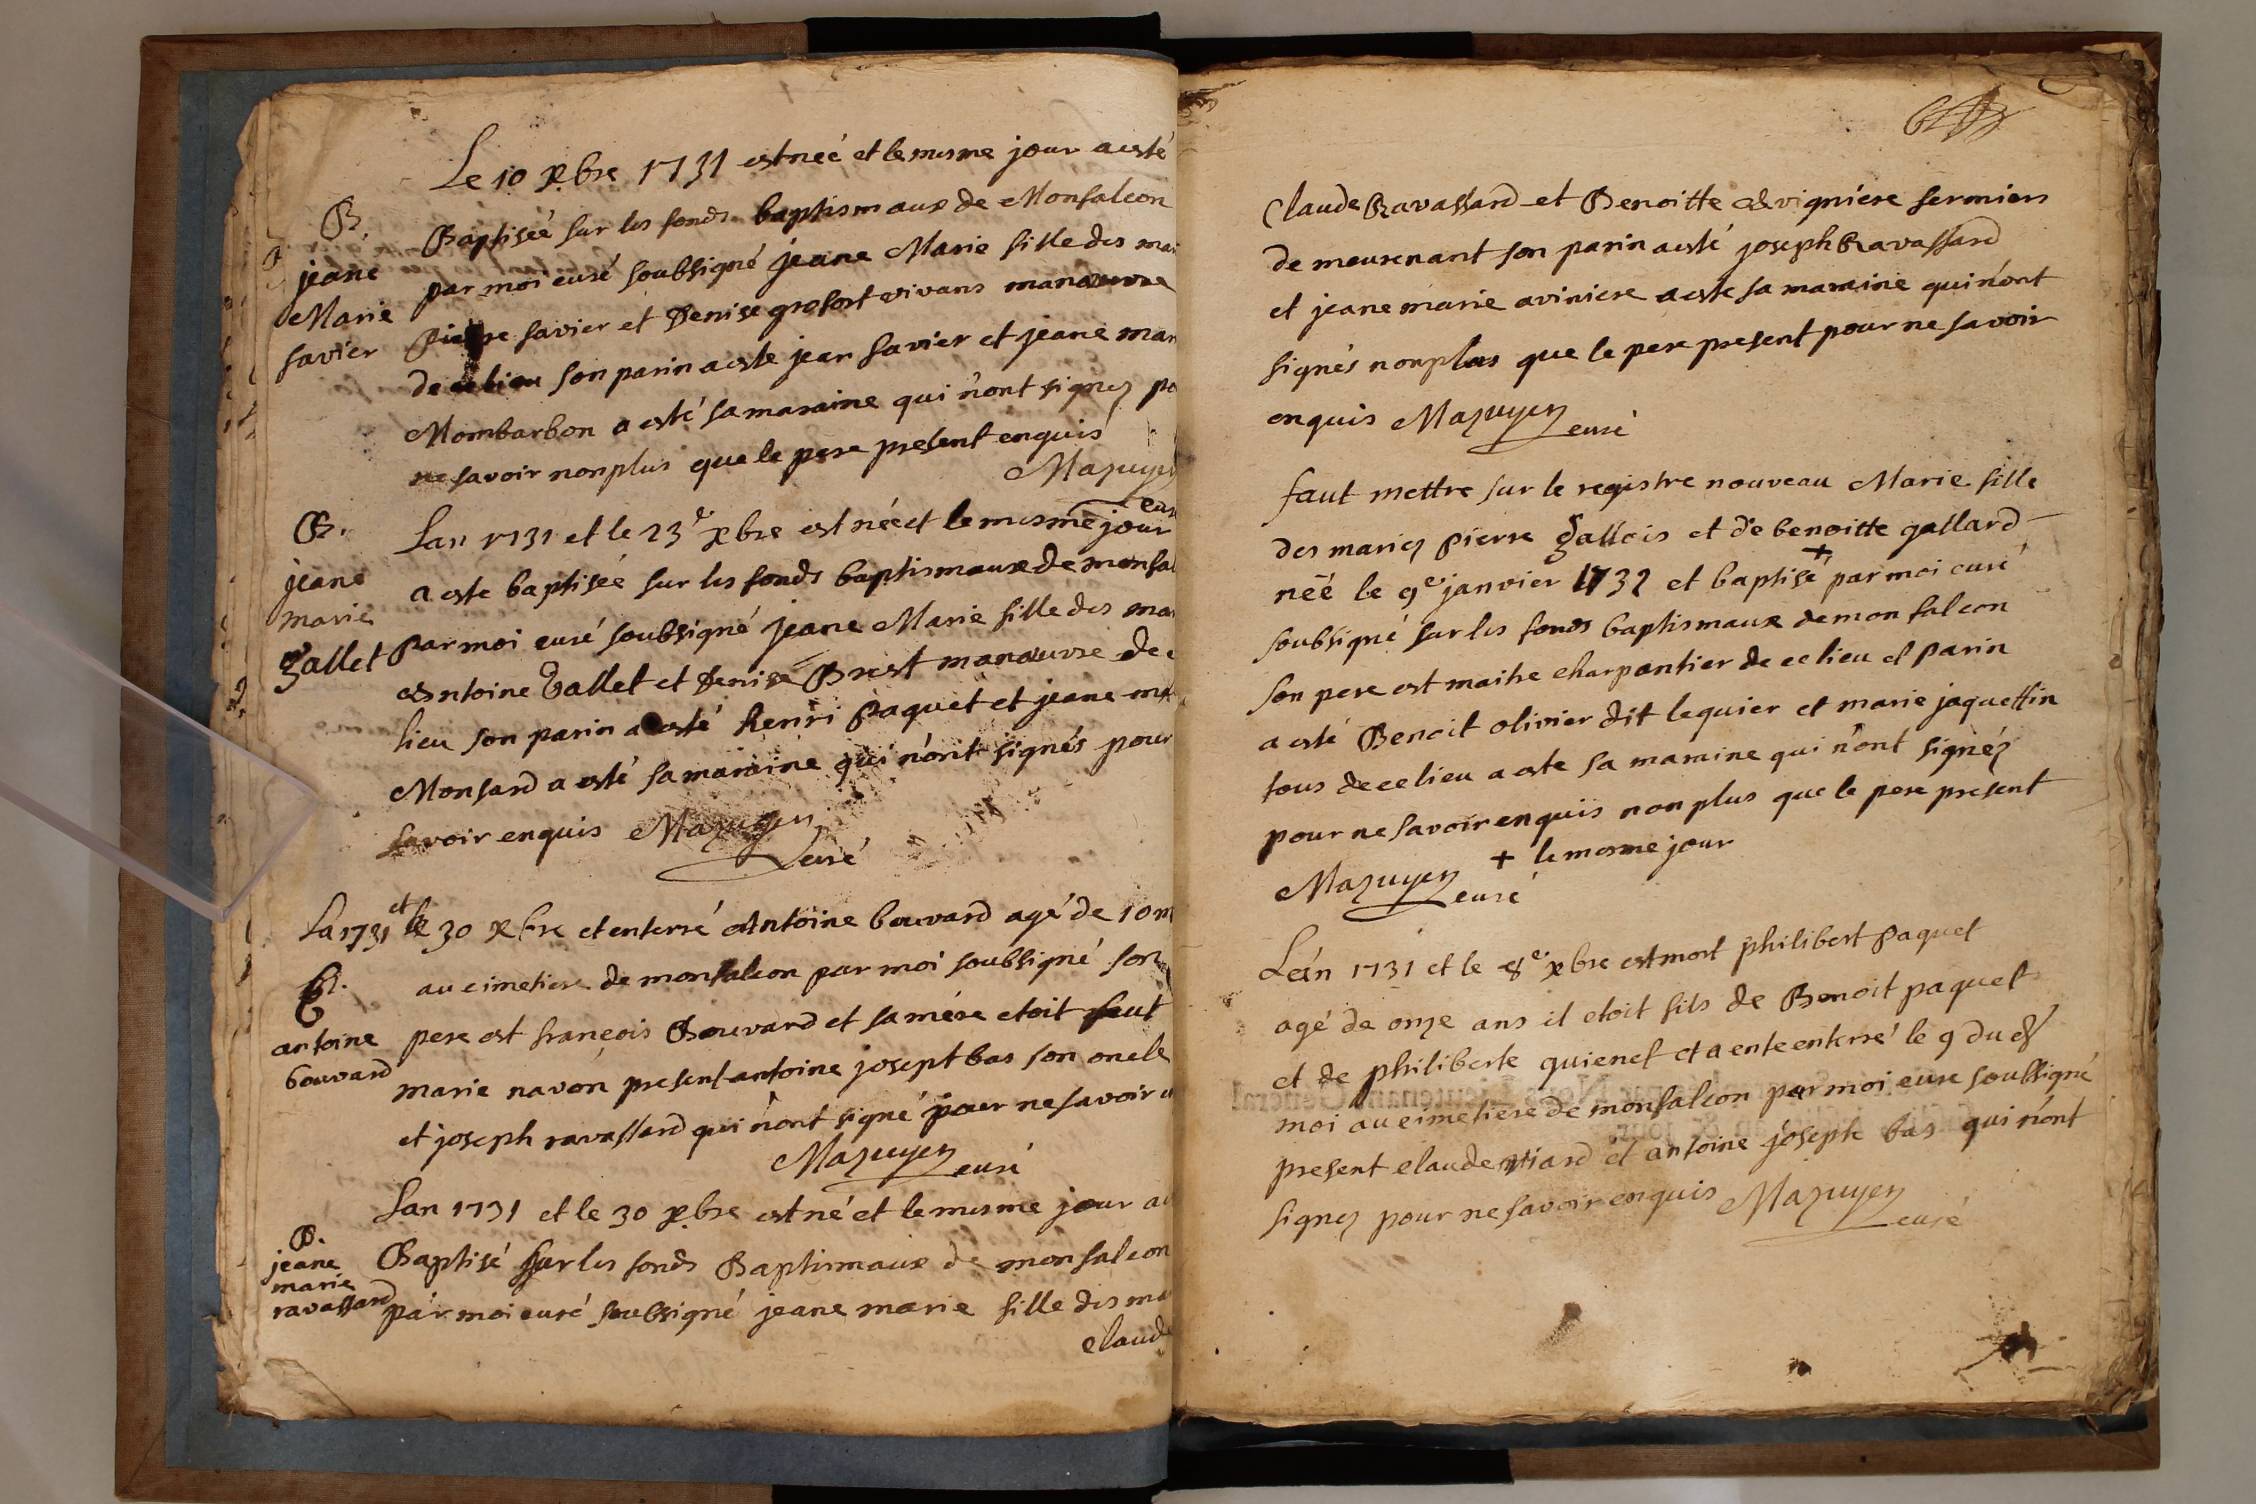 Le 10 xbre 1731 est neé et le mesme jour a esté
B.
jeane
Marie
savier
Baptiseé sur les fonds baptismaux de Monfalcon
par moi curé soubsigné jeane Marie fille des mar
Pierre savier et Denise grosfort vivans manœuvre
de ce lieu son parin a este jean savier et jeane mar
Mombarbon a esté sa maraine qui n'ont signez po
ne savoir non plus que le pere present enquis
Mazuyer
curé
B.
jeane
marie
gallet
Lan 1731 et le 23e xbre est née et le mesme jour
a este baptisée sur les fonds baptismaux de monfal
par moi curé soubsigné jeane Marie fille des mar
Antoine Gallet et Denise Brest manœuvre de c
lieu son parin a esté henri Paquet et jeane ma
Monsard a esté sa maraine qui n'ont signés pour
savoir enquis Mazuyer
curé
La 1731 et le 30 xbre et enterré Antoine bouvard agé de 10 m
E.
antoine
bouvard
au cimetiere de monfalcon par moi soubsigné son
pere est françois Bouvard et sa mére etoit feut
marie navon present antoine josept bas son oncle
et joseph ravassard qui n'ont signé pour ne savoir
Mazuyer curé
B.
jeane
marie
ravassard
Lan 1731 et le 30 xbre est né et le mesme jour a
Baptisé sur les fonds Baptismaux de monfalcon
par moi curé soubsigné jeane marie fille des ma
claude
Claude Ravassard et Benoitte Avigniere fermiers
de meurenant son parin a esté joseph Ravassard
et jeane marie aviniere a este sa maraine qui n'ont
signés non plus que le pere present pour ne savoir
enquis Mazuyer curé
faut mettre sur le registre nouveau Marie fille
des mariez pierre gallois et de benoitte gallard
néé le 9e janvier 1732 et baptisé + par moi curé
soubsigné sur les fonds baptismaux de monfalcon
son pere est maitre charpantier de ce lieu et parin
a esté Benoit olivier dit lequier et marie jaquettin
tous de ce lieu a este sa maraine qui n'ont signéz
pour ne savoir enquis non plus que le pere present
Mazuyer curé + le mesme jour
Lan 1731 et le 8e xbre est mort philibert Paquet
agé de onze ans il etoit fils de Benoit paquet
et de philiberte quienet et a ente enterré le 9 du d
moi au cimetiere de monfalcon par moi cure soubsigné
present claude tiard et antoine joseph bas qui n'ont
signez pour ne savoir enquis Mazuyer
curé